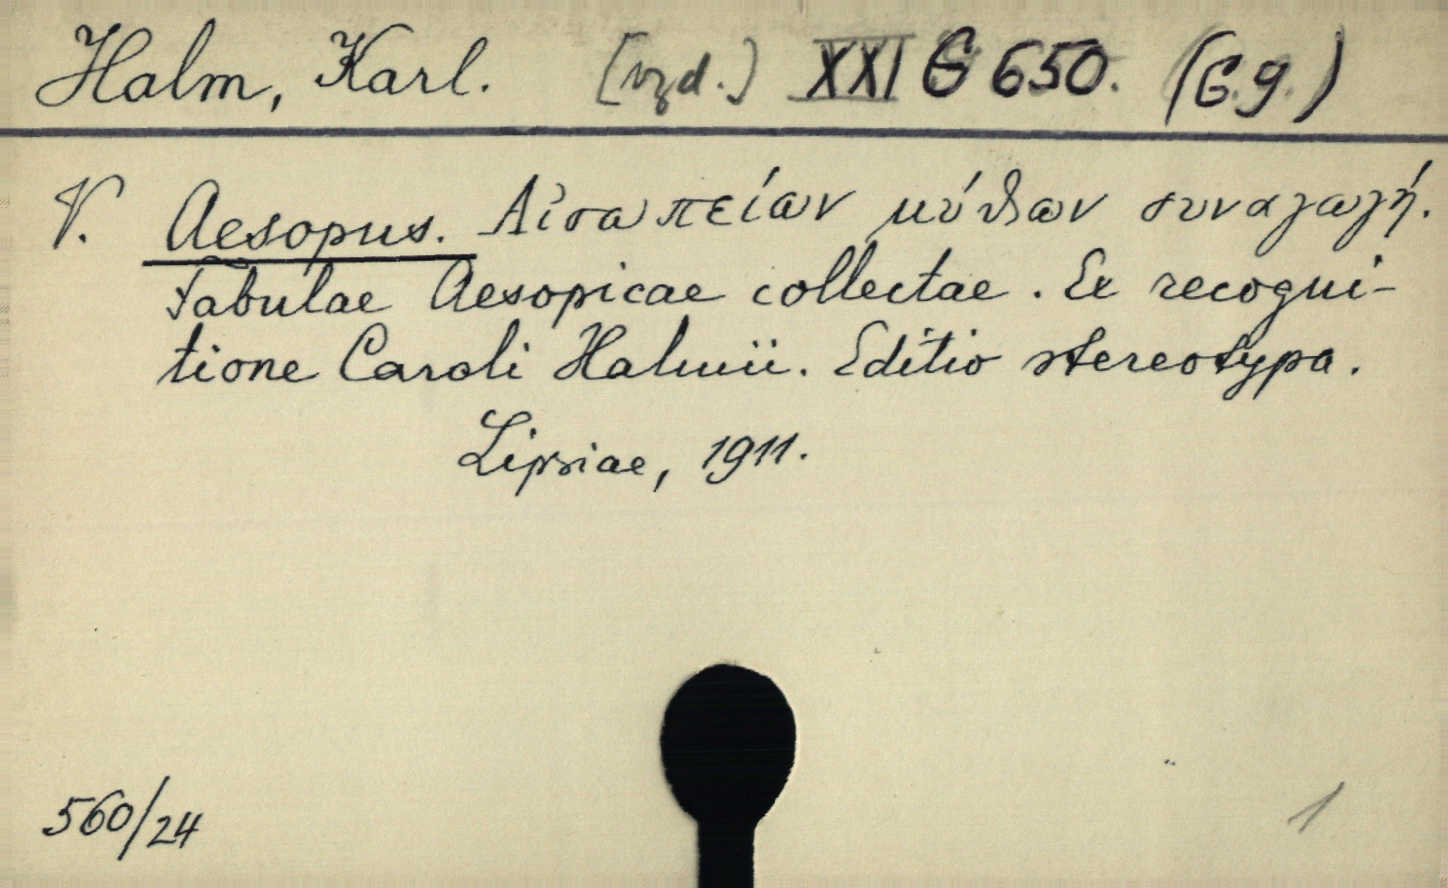 Halm, Karl. [vyd.] XXI G 650. (G.g.)
V. Aesopus. Αἰσωπείων μύθων συναγωγή.
Fabulae Aesopicae collectae. Ex recogni-
tione Caroli Halmii. Editio stereotypa.
Lipsiae, 1911.
560/24
1